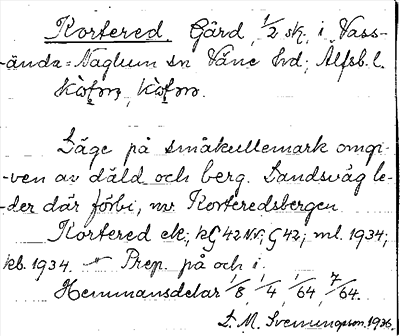 Kortered. Gård, 1/2 sk. i Vass-
ända-Naglum sn Väne hd; Älfsb. l.
Läge på småkullemark omgi-
ven av däld och berg. Landsväg le-
der där förbi, nv Korteredsbergen
Kortered ek; kG 42 NV; G 42; ml. 1934;
kb. 1934. Prep. på och i.
Hemmansdelar 1/8, 1/4, 1/64, 7/64.
D. M. Svenungson. 1936.